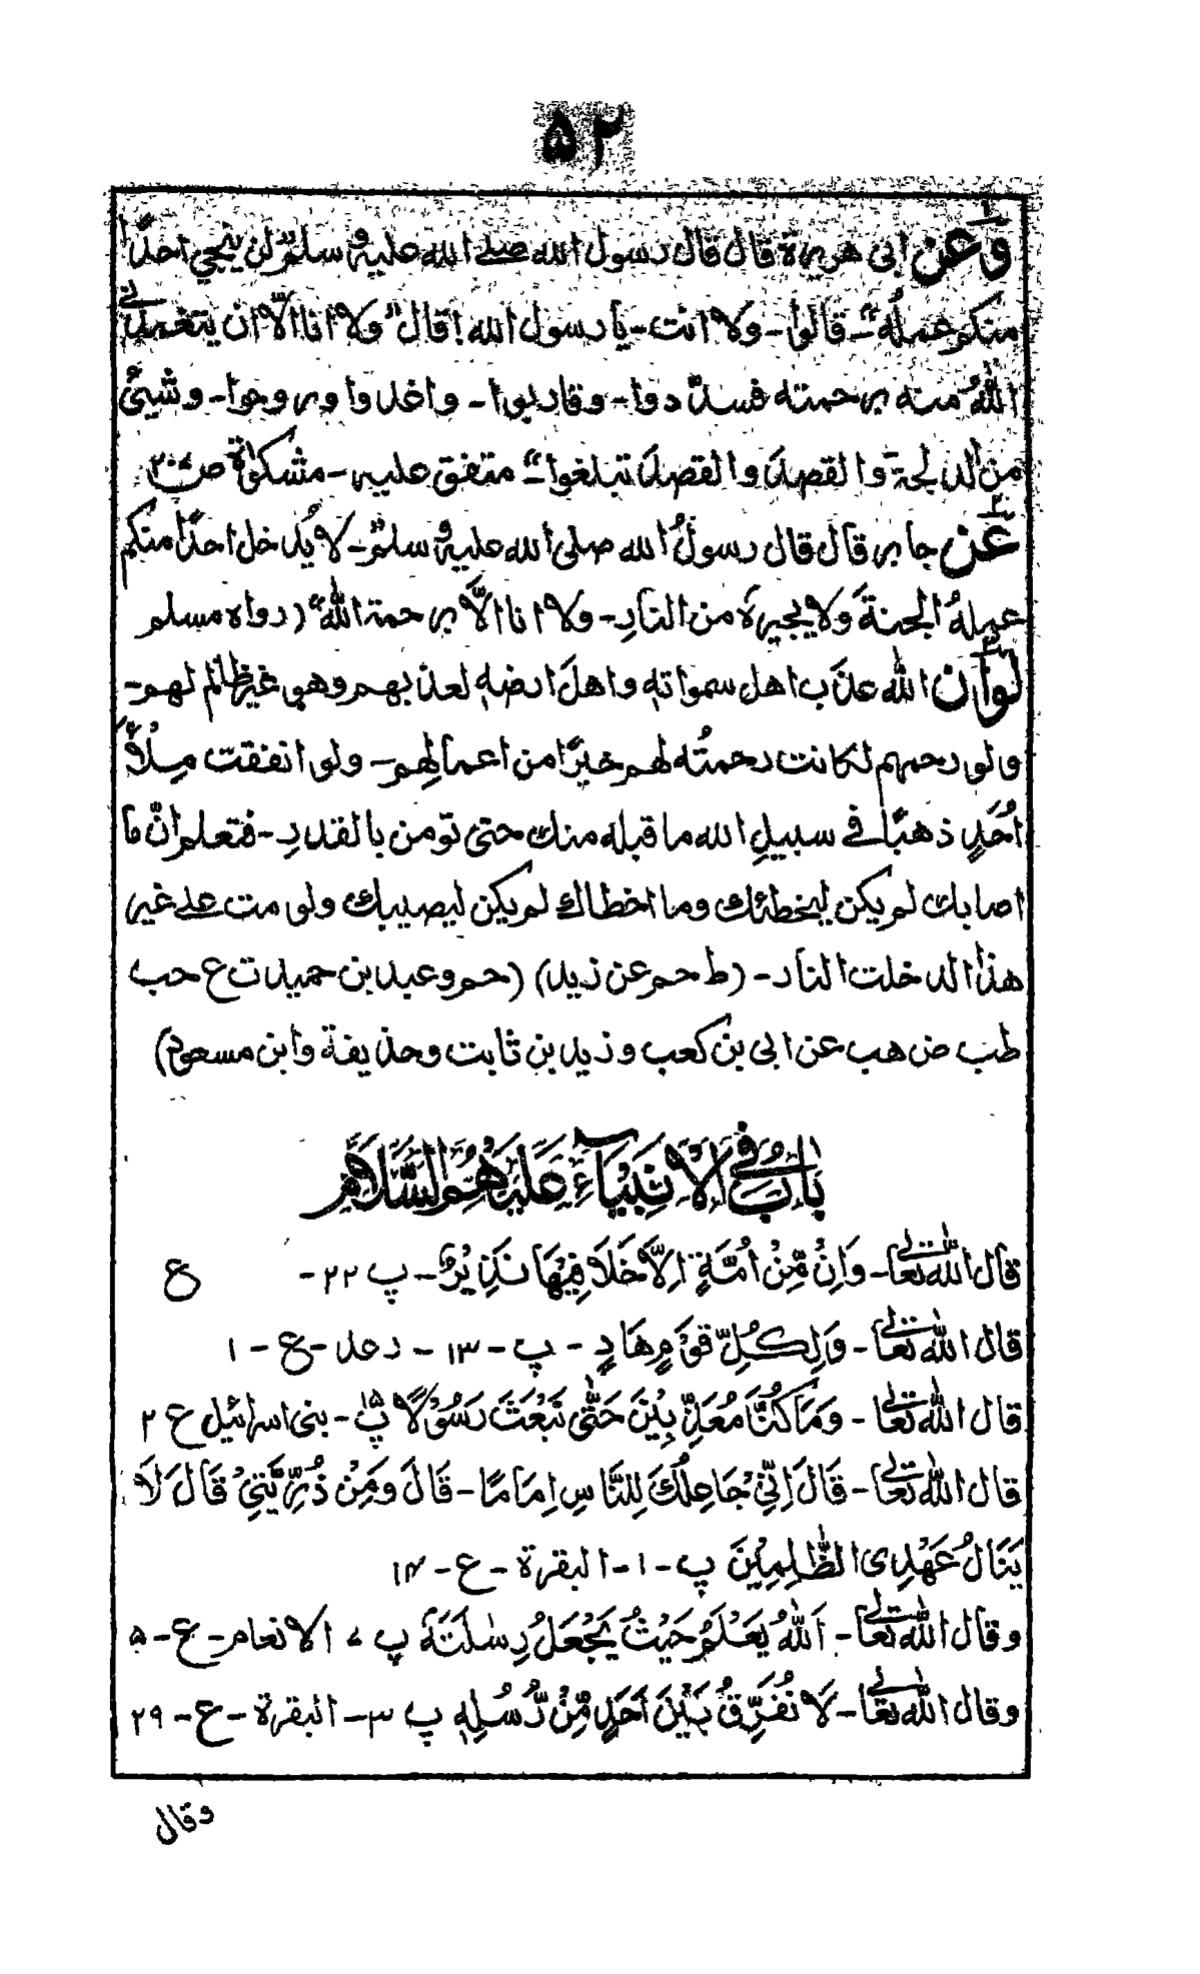 ۵۲
۱
وَعن ابی هریرة قال قال رسول الله صلے الله علیہ وسلم لن ینجي احدًا
منکم عملُه“ـ قالوا ـ ولا انت ـ یا رسول الله! قال ”ولا انا الّا ان یتغمدنی
اللّٰهُ منه برحمته فسدّدوا ـ وقاربوا ـ واغدوا وروحوا ـ وشیئٌ
من الدلجة والقصدَ والقصدَ تبلغوا“ـ متفق علیہ ـ مشکوٰة ص۲۰۷
۲
عن جابر قال قال رسولُ الله صلی الله علیہ وسلم ـ لا یُدخل احدًا منکم
عملهُ الجنةَ ولا یجیرهُ من النارِ ـ ولا انا الّا برحمة اللّٰه“ (رواه مسلم
۳
لو اَن اللّٰه عذّب اهل سمواته واهلَ ارضه لعذبهم وهو غیر ظالم لهم ـ
ولو رحمهم لکانت رحمتُه لهم خیرًا من اعمالِهم ـ ولو انفقت مِلأَ
اُحُدٍ ذهبًا فے سبیلِ الله ما قبله منك حتی تومن بالقدرِ ـ فتعلم انّ ما
اصابك لم یکن لیخطئك وما اخطاك لم یکن لیصیبك ولو مت علے غیر
هذا لدخلت النار ـ (ط حم عن زید) (حم وعبد بن حمید ت ع حب
طب ض هب عن ابی بن کعب وزید بن ثابت وحذیفة وابن مسعود)
بَابُ فِی الْاَنْبِیَآءِ عَلَیْهِمُ السَّلَام
قال اللّٰه تعالٰی ـ وَاِنْ مِّنْ اُمَّةٍ اِلَّا خَلَا فِیْهَا نَذِیْرٌ ـ پ ۲۲ ـ ع
قال اللّٰه تعالٰی ـ وَلِکُلِّ قَوْمٍ هَادٍ ـ پ ـ ۱۳ ـ رعد ـ ع ـ ۱
قال اللّٰه تعالٰی ـ وَمَا کُنَّا مُعَذِّبِیْنَ حَتّٰی نَبْعَثَ رَسُوْلًا پ۱۵ ـ بنی اسرائیل ع ۲
قال اللّٰه تعالٰی ـ قَالَ اِنِّیْ جَاعِلُكَ لِلنَّاسِ اِمَامًا ـ قَالَ وَمِنْ ذُرِّیَّتِیْ قَالَ لَا
یَنَالُ عَهْدِی الظّٰلِمِیْنَ پ ـ ۱ ـ البقرة ـ ع ـ ۱۴
وقال اللّٰه تعالٰی ـ اَللّٰهُ یَعْلَمُ حَیْثُ یَجْعَلُ رِسٰلَتَهٗ پ ۷ الانعام ـ ع ـ ۵
وقال اللّٰه تعالٰی ـ لَا نُفَرِّقُ بَیْنَ اَحَدٍ مِّنْ رُّسُلِهٖ پ ۳ ـ البقرة ـ ع ـ ۲۹
وقال